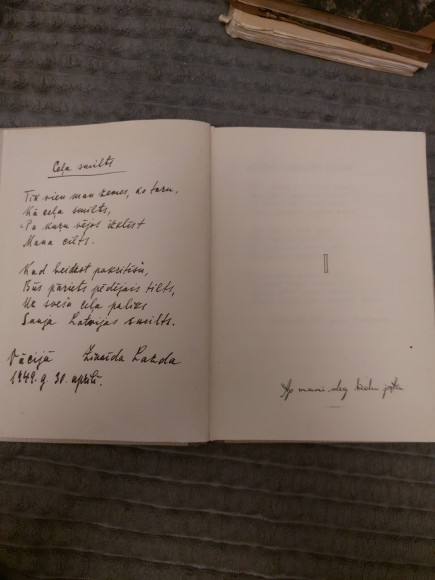 Ceļa smilts
Tik vien man zemes, ko turu,
Kā ceļa smilts,
Pa kuru vējos izklīst
Mana cilts.
Kad beidzot pakritīšu,
Būs pāriets pēdējais tilts,
Uz sveša ceļa paliks
Sauja Latvijas smilts.
Vācijā Zinaīda Lazda
1949. g. 30. aprīlī.
I
Ap mani deg